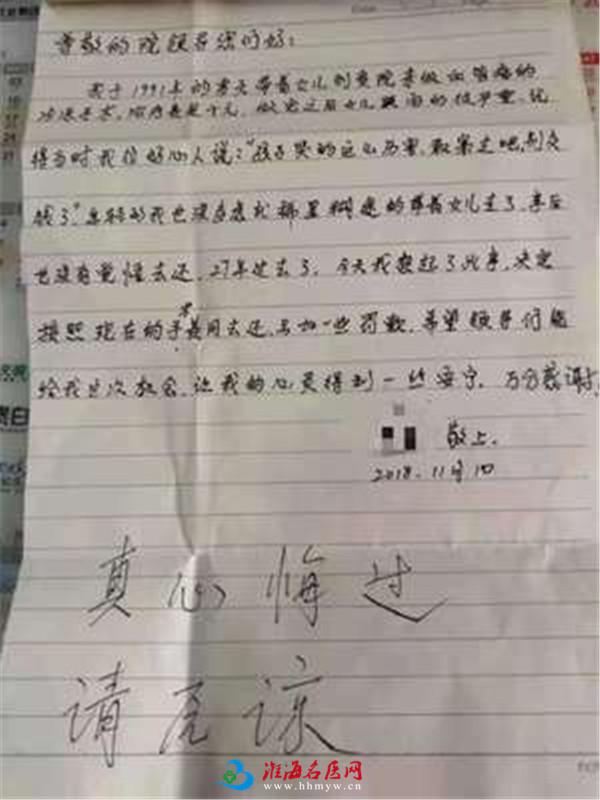 尊敬的院领导您们好:
我于1991年的春天带着女儿到贵院来做血管瘤的
冷冻手术,治疗费是十元,做完之后女儿哭闹的很严重,记
得当时我位好心人说:"孩子哭的这么厉害,取药走吧,别交
钱了"年轻的我也没多虑就稀里糊涂的带着女儿走了,事后
也没有觉悟去还,27年过去了,今天我想起了此事,决定
按照现在的手术费用去还,另加一些罚款,希望领导们能
给我这次机会,让我的心灵得到一丝安宁,万分感谢!
敬上.
2018.11月10
真心悔过
请原谅
淮海名医网
www.hhmyw.cn